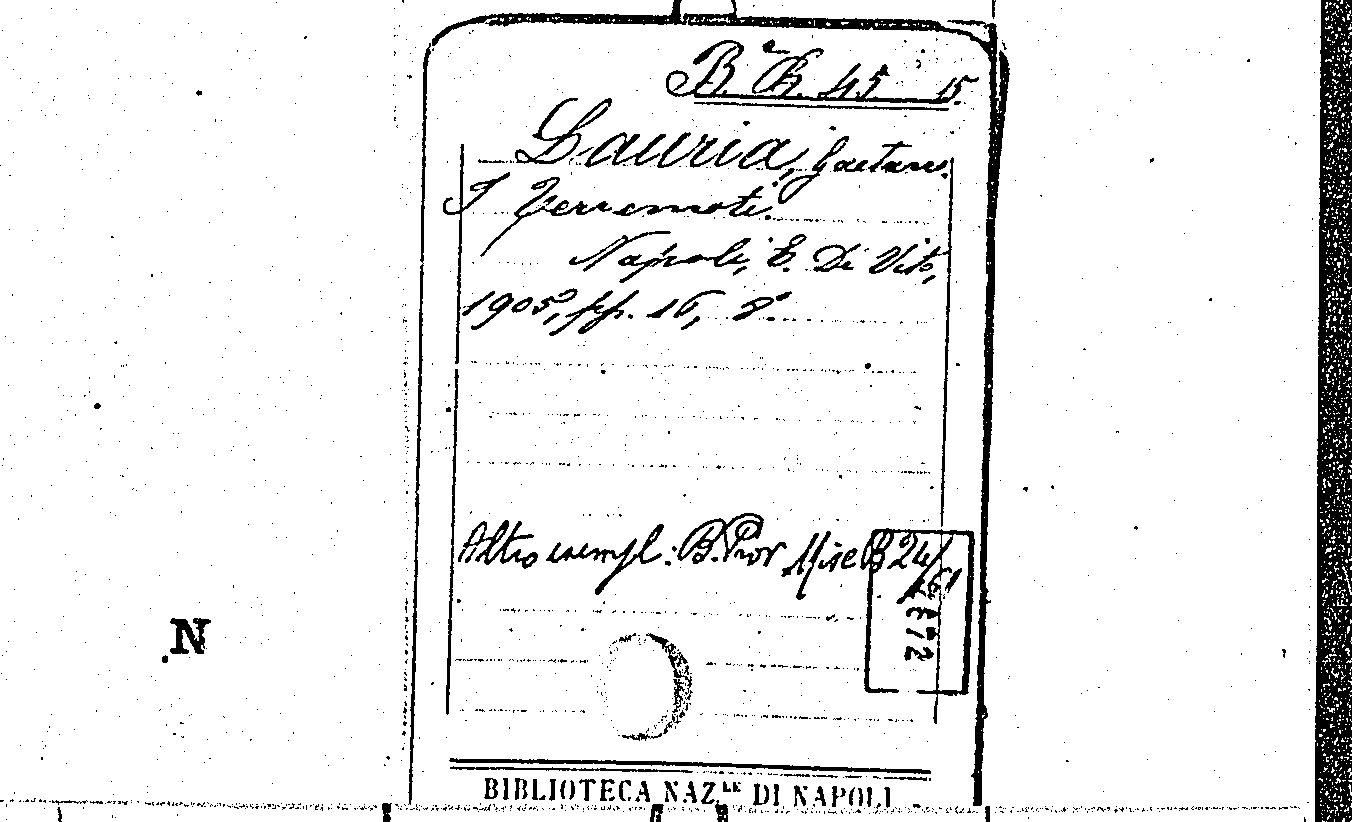 B. Ch. 45 15.
Lauria, Gaetano.
I Terremoti.
Napoli, E. Di Vito,
1905, pp. 16, 8°.
Altro esempl: B. Prov Misc B 24/
61
N
BIBLIOTECA NAZLE DI NAPOLI